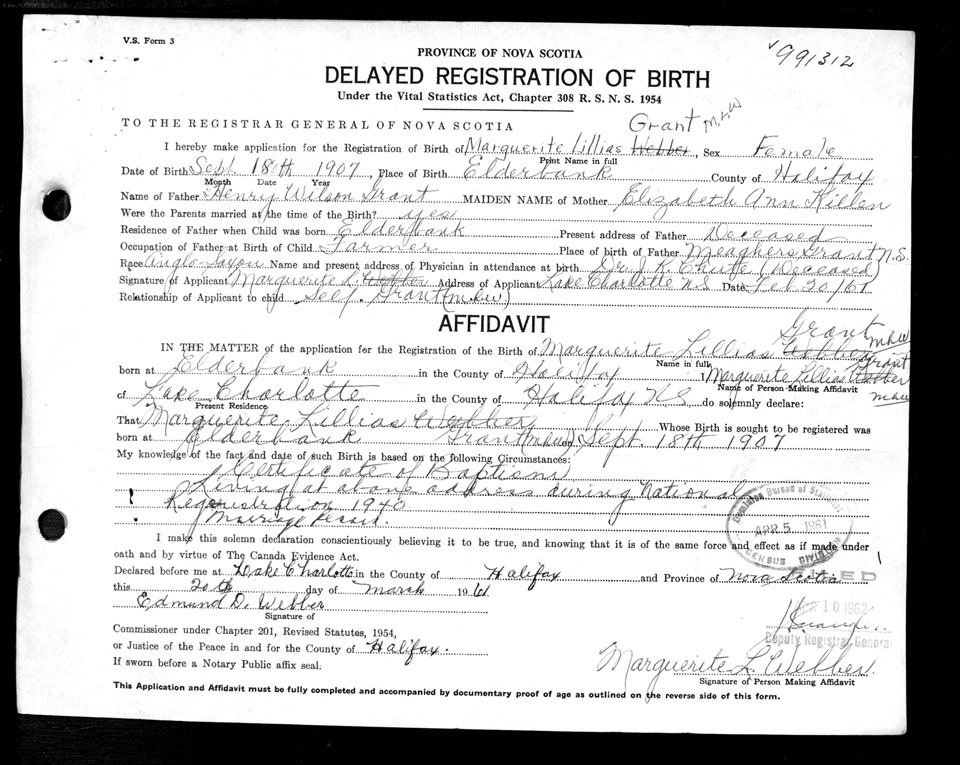 V.S. Form 3
991312
PROVINCE OF NOVA SCOTIA
DELAYED REGISTRATION OF BIRTH
Under the Vital Statistics Act, Chapter 308 R. S. N. S. 1954
Grant
TO THE REGISTRAR GENERAL OF NOVA SCOTIA
I hereby make application for the Registration of Birth of Marguerite Lillias Webber, Sex Female
Print Name in full
Date of Birth Sept 18th 1907, Place of Birth Elderbank County of Halifax
Month Date Year
Name of Father Henry Wilson Grant MAIDEN NAME of Mother Elizabeth Ann Killen
Were the Parents married at the time of the Birth? yes
Residence of Father when Child was born Elderbank Present address of Father Deceased
Occupation of Father at Birth of Child Farmer Place of birth of Father Meaghers Grant N.S.
Race Anglo-Saxon Name and present address of Physician in attendance at birth Dr. (Deceased)
Signature of Applicant Marguerite L. Webber Address of Applicant Lake Charlotte N.S Date Feb 20/61
Relationship of Applicant to child Self. Grant
AFFIDAVIT
Grant
IN THE MATTER of the application for the Registration of the Birth of Marguerite Lillias Webber
Grant
Name in full
born at Elderbank in the County of Halifax I Marguerite Lillias Webber
Name of Person Making Affidavit
of Lake Charlotte in the County of Halifax N.S. do solemnly declare:
Present Residence
That Marguerite Lillias Webber Whose Birth is sought to be registered was
born at Elderbank Grant on Sept 18th 1907
My knowledge of the fact and date of such Birth is based on the following Circumstances:
Certificate of Baptism
Living at above address during National
Registration 1940
Dominion Bureau of Statistics
APR 5 1961
CENSUS DIVISION
I make this solemn declaration conscientiously believing it to be true, and knowing that it is of the same force and effect as if made under
oath and by virtue of The Canada Evidence Act.
Declared before me at Lake Charlotte in the County of Halifax and Province of Nova Scotia
this 20th day of March 1961
FILED
Edmund D. Webber
Signature of
APR 10 1962
Deputy Registrar General
Commissioner under Chapter 201, Revised Statutes, 1954,
or Justice of the Peace in and for the County of Halifax.
If sworn before a Notary Public affix seal.
Marguerite L. Webber.
Signature of Person Making Affidavit
This Application and Affidavit must be fully completed and accompanied by documentary proof of age as outlined on the reverse side of this form.